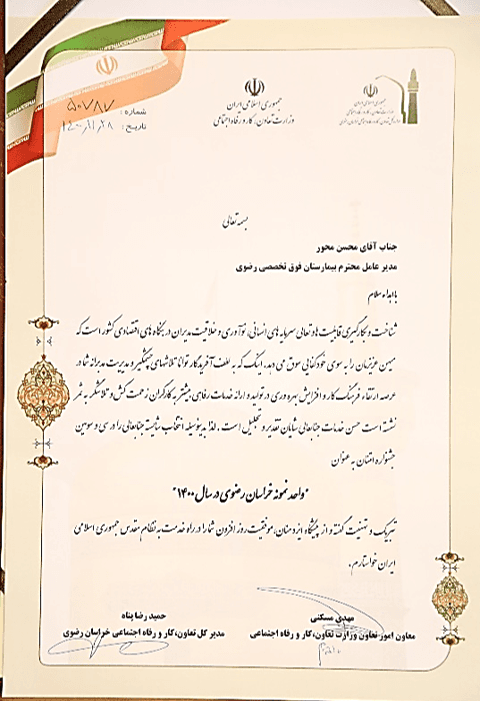 شماره: ۵۰۷۸۷
تاریخ: ۱۴۰۰/۱۱/۲۸
جمهوری اسلامی ایران
وزارت تعاون، کار و رفاه اجتماعی
جمهوری اسلامی ایران
وزارت تعاون، کار و رفاه اجتماعی
بسمه تعالی
جناب آقای محسن محور
مدیر عامل محترم بیمارستان فوق تخصصی رضوی
با اهداء سلام
شناخت و بکارگیری قابلیت ها و تعالی سرمایه های انسانی، نوآوری و خلاقیت مدیران در بنگاه های اقتصادی کشور است که
میهن عزیزمان را به سوی خودکفایی سوق می دهد، اینک که به لطف آفریدگار توانا تلاشهای چشمگیر و مدیریت مدبرانه شما در
عرصه ارتقاء فرهنگ کار و افزایش بهره وری در تولید و ارائه خدمات رفاهی بیشتر به کارگران زحمت کش و تلاشگر به ثمر
نشسته است حسن خدمات جنابعالی شایان تقدیر و تجلیل است. لذا بدینوسیله انتخاب شایسته جنابعالی را در سی و سومین
جشنواره امتنان به عنوان
"واحد نمونه خراسان رضوی در سال ۱۴۰۰"
تبریک و تهنیت گفته و از پیشگاه ایزد منان، موفقیت روز افزون شما را در راه خدمت به نظام مقدس جمهوری اسلامی
ایران خواستارم.
مهدی مسکنی
معاون امور تعاون وزارت تعاون، کار و رفاه اجتماعی
حمید رضا پناه
مدیر کل تعاون، کار و رفاه اجتماعی خراسان رضوی